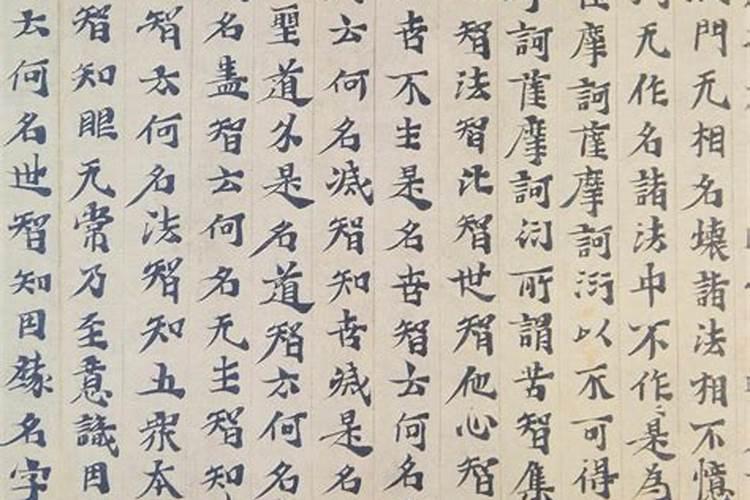 門无相名壞諸法相不憶
无作名諸法中不作是為
摩訶薩摩訶衍以不可得
訶薩摩訶衍所謂苦智集
智法智比智世智他心智
苦不生是名苦智云何名
云何名滅智知苦滅是名
聖道分是名道智云何名
名盡智云何名无生智知
智云何名法智知五衆本
智知眼无常乃至意識因
云何名世智知因緣名字